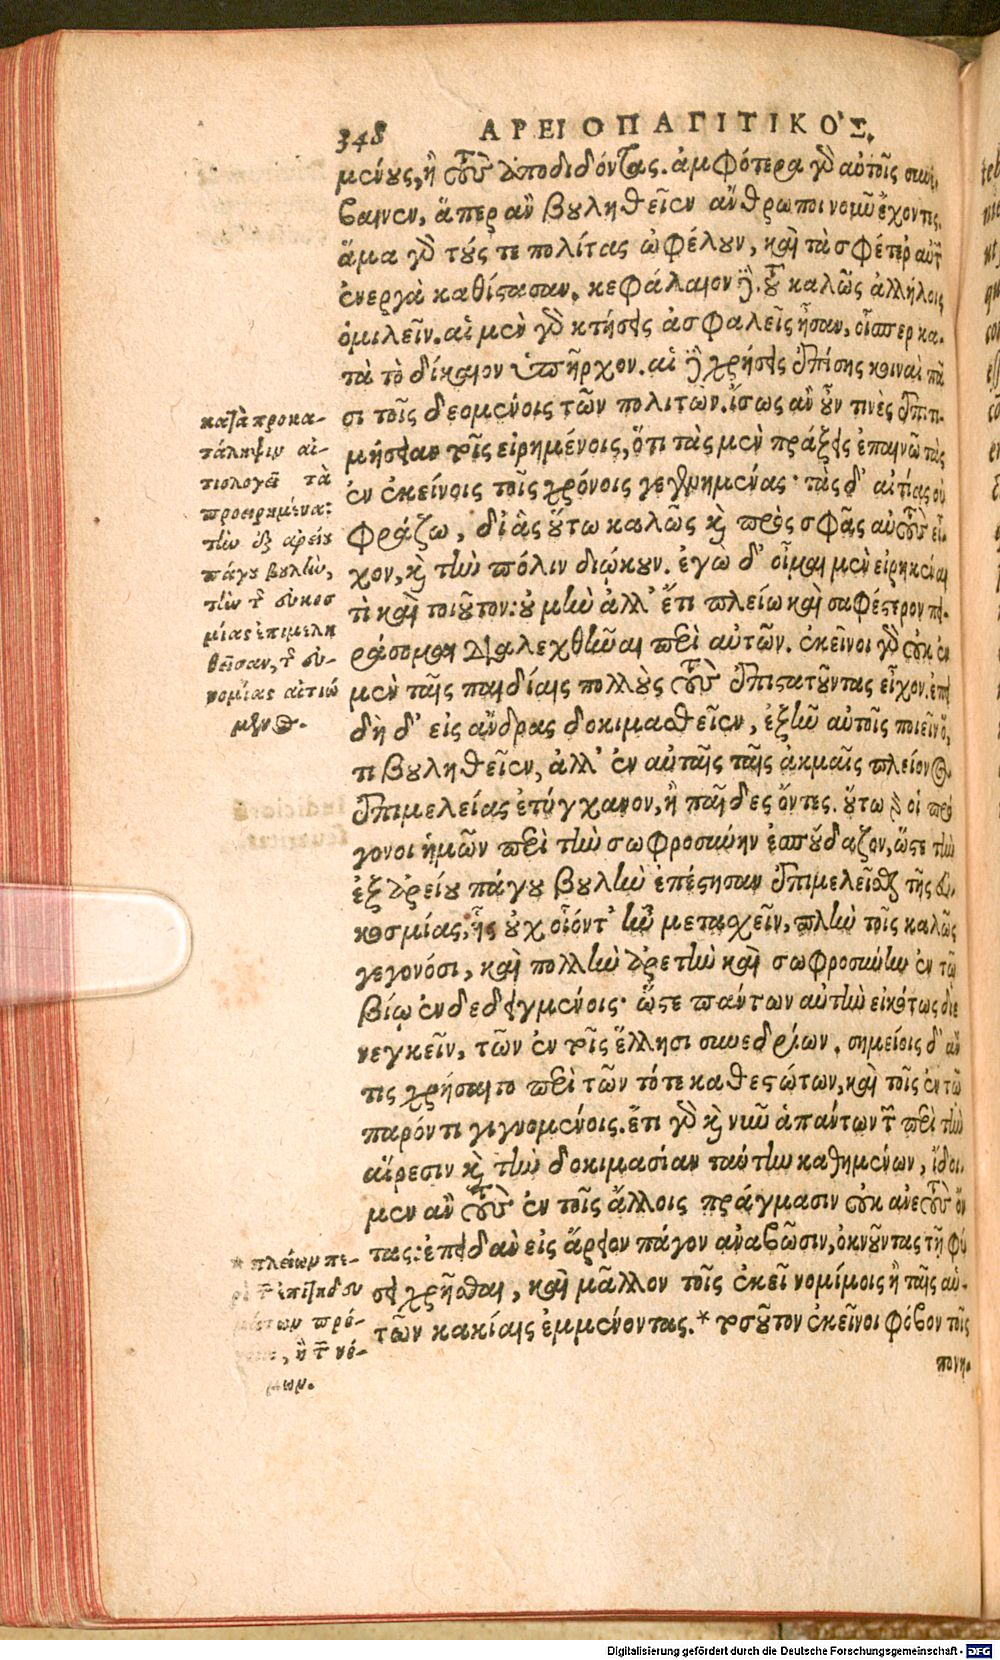 348 ΑΡΕΙΟΠΑΓΙΤΙΚΟΣ.
μένους, ἢ τοὺς ἀποδιδόντας. ἀμφότερα γὰρ αὐτοῖς συνέ-
βαινεν, ἅπερ ἂν βουληθεῖεν ἄνθρωποι νοῦν ἔχοντες.
ἅμα γὰρ τούς τε πολίτας ὠφέλουν, καὶ τὰ σφέτερ αὐτῶν
ἐνεργὰ καθίστασαν. κεφάλαιον δὲ τοῦ καλῶς ἀλλήλοις
ὁμιλεῖν. αἱ μὲν γὰρ κτήσεις ἀσφαλεῖς ἦσαν, οἷσπερ κα-
τὰ τὸ δίκαιον ὑπῆρχον. αἱ δὲ χρήσεις ἐπίσης κοιναὶ πᾶ
σι τοῖς δεομένοις τῶν πολιτῶν. ἴσως ἂν οὖν τινὲς ἐπιτι-
μήσειαν τοῖς εἰρημένοις, ὅτι τὰς μὲν πράξεις ἐπαινῶ τὰς
ἐν ἐκείνοις τοῖς χρόνοις γεγενημένας· τὰς δ' αἰτίας οὐ
φράζω, δι' ἃς οὕτω καλῶς καὶ πρὸς σφᾶς αὐτοὺς εἶ-
χον, καὶ τὴν πόλιν διῴκουν. ἐγὼ δ' οἶμαι μὲν εἰρηκέναι
τὶ καὶ τοιοῦτον: οὐ μὴν ἀλλ' ἔτι πλείω καὶ σαφέστερον πει-
ράσομαι διαλεχθῆναι περὶ αὐτῶν. ἐκεῖνοι γὰρ οὐκ ἐν
μὲν ταῖς παιδίαις πολλοὺς τοὺς ἐπιστατοῦντας εἶχον. ἐπει
δὴ δ' εἰς ἄνδρας δοκιμασθεῖεν, ἐξῆν αὐτοῖς ποιεῖν ὅ,
τι βουληθεῖεν, ἀλλ' ἐν αὐταῖς ταῖς ἀκμαῖς πλείονος
ἐπιμελείας ἐτύγχανον, ἢ παῖδες ὄντες. οὕτω γὰρ οἱ πρό
γονοι ἡμῶν περὶ τὴν σωφροσύνην ἐσπούδαζον, ὥστε τὴν
ἐξ ἀρείου πάγου βουλὴν ἐπέστησαν ἐπιμελεῖσθαι τῆς εὐ-
κοσμίας, ἧς οὐχ οἷόντ' ἦν μετασχεῖν, πλὴν τοῖς καλῶς
γεγονόσι, καὶ πολλὴν ἀρετὴν καὶ σωφροσύνην ἐν τῷ
βίῳ ἐνδεδειγμένοις· ὥστε πάντων αὐτὴν εἰκότως διε
νεγκεῖν, τῶν ἐν τοῖς ἕλλησι συνεδρίων. σημείοις δ' ἄν
τις χρήσαιτο περὶ τῶν τότε καθεστώτων, καὶ τοῖς ἐν τῷ
παρόντι γιγνομένοις. ἔτι γὰρ καὶ νῦν ἁπάντων τῶν περὶ τὴν
αἵρεσιν καὶ τὴν δοκιμασίαν ταύτην καθημένων, ἴδοι-
μεν ἂν τοὺς ἐν τοῖς ἄλλοις πράγμασιν οὐκ ἀνεκτοὺς ὄν
τας: ἐπειδὰν εἰς ἄρειον πάγον ἀναβῶσιν, ὀκνοῦντας τῇ φύ
σει χρῆσθαι, καὶ μᾶλλον τοῖς ἐκεῖ νομίμοις ἢ ταῖς αὑ-
τῶν κακίαις ἐμμένοντας.* τοσοῦτον ἐκεῖνοι φόβον τοῖς
πονη-
κατὰ προκα-
τάληψιν αἰ-
τιολογεῖ τὰ
προειρημένα:
τὴν ἐξ ἀρείου
πάγου βουλὴν,
τὴν τῆς εὐκοσ
μίας ἐπιμελη
θεῖσαν, τῆς εὐ-
νομίας αἰτιώ
μενος.
* πλείων πε-
ρὶ τῶν ἐπιτηδευ
μάτων πρό-
, ἢ τῶν νό-
μων.